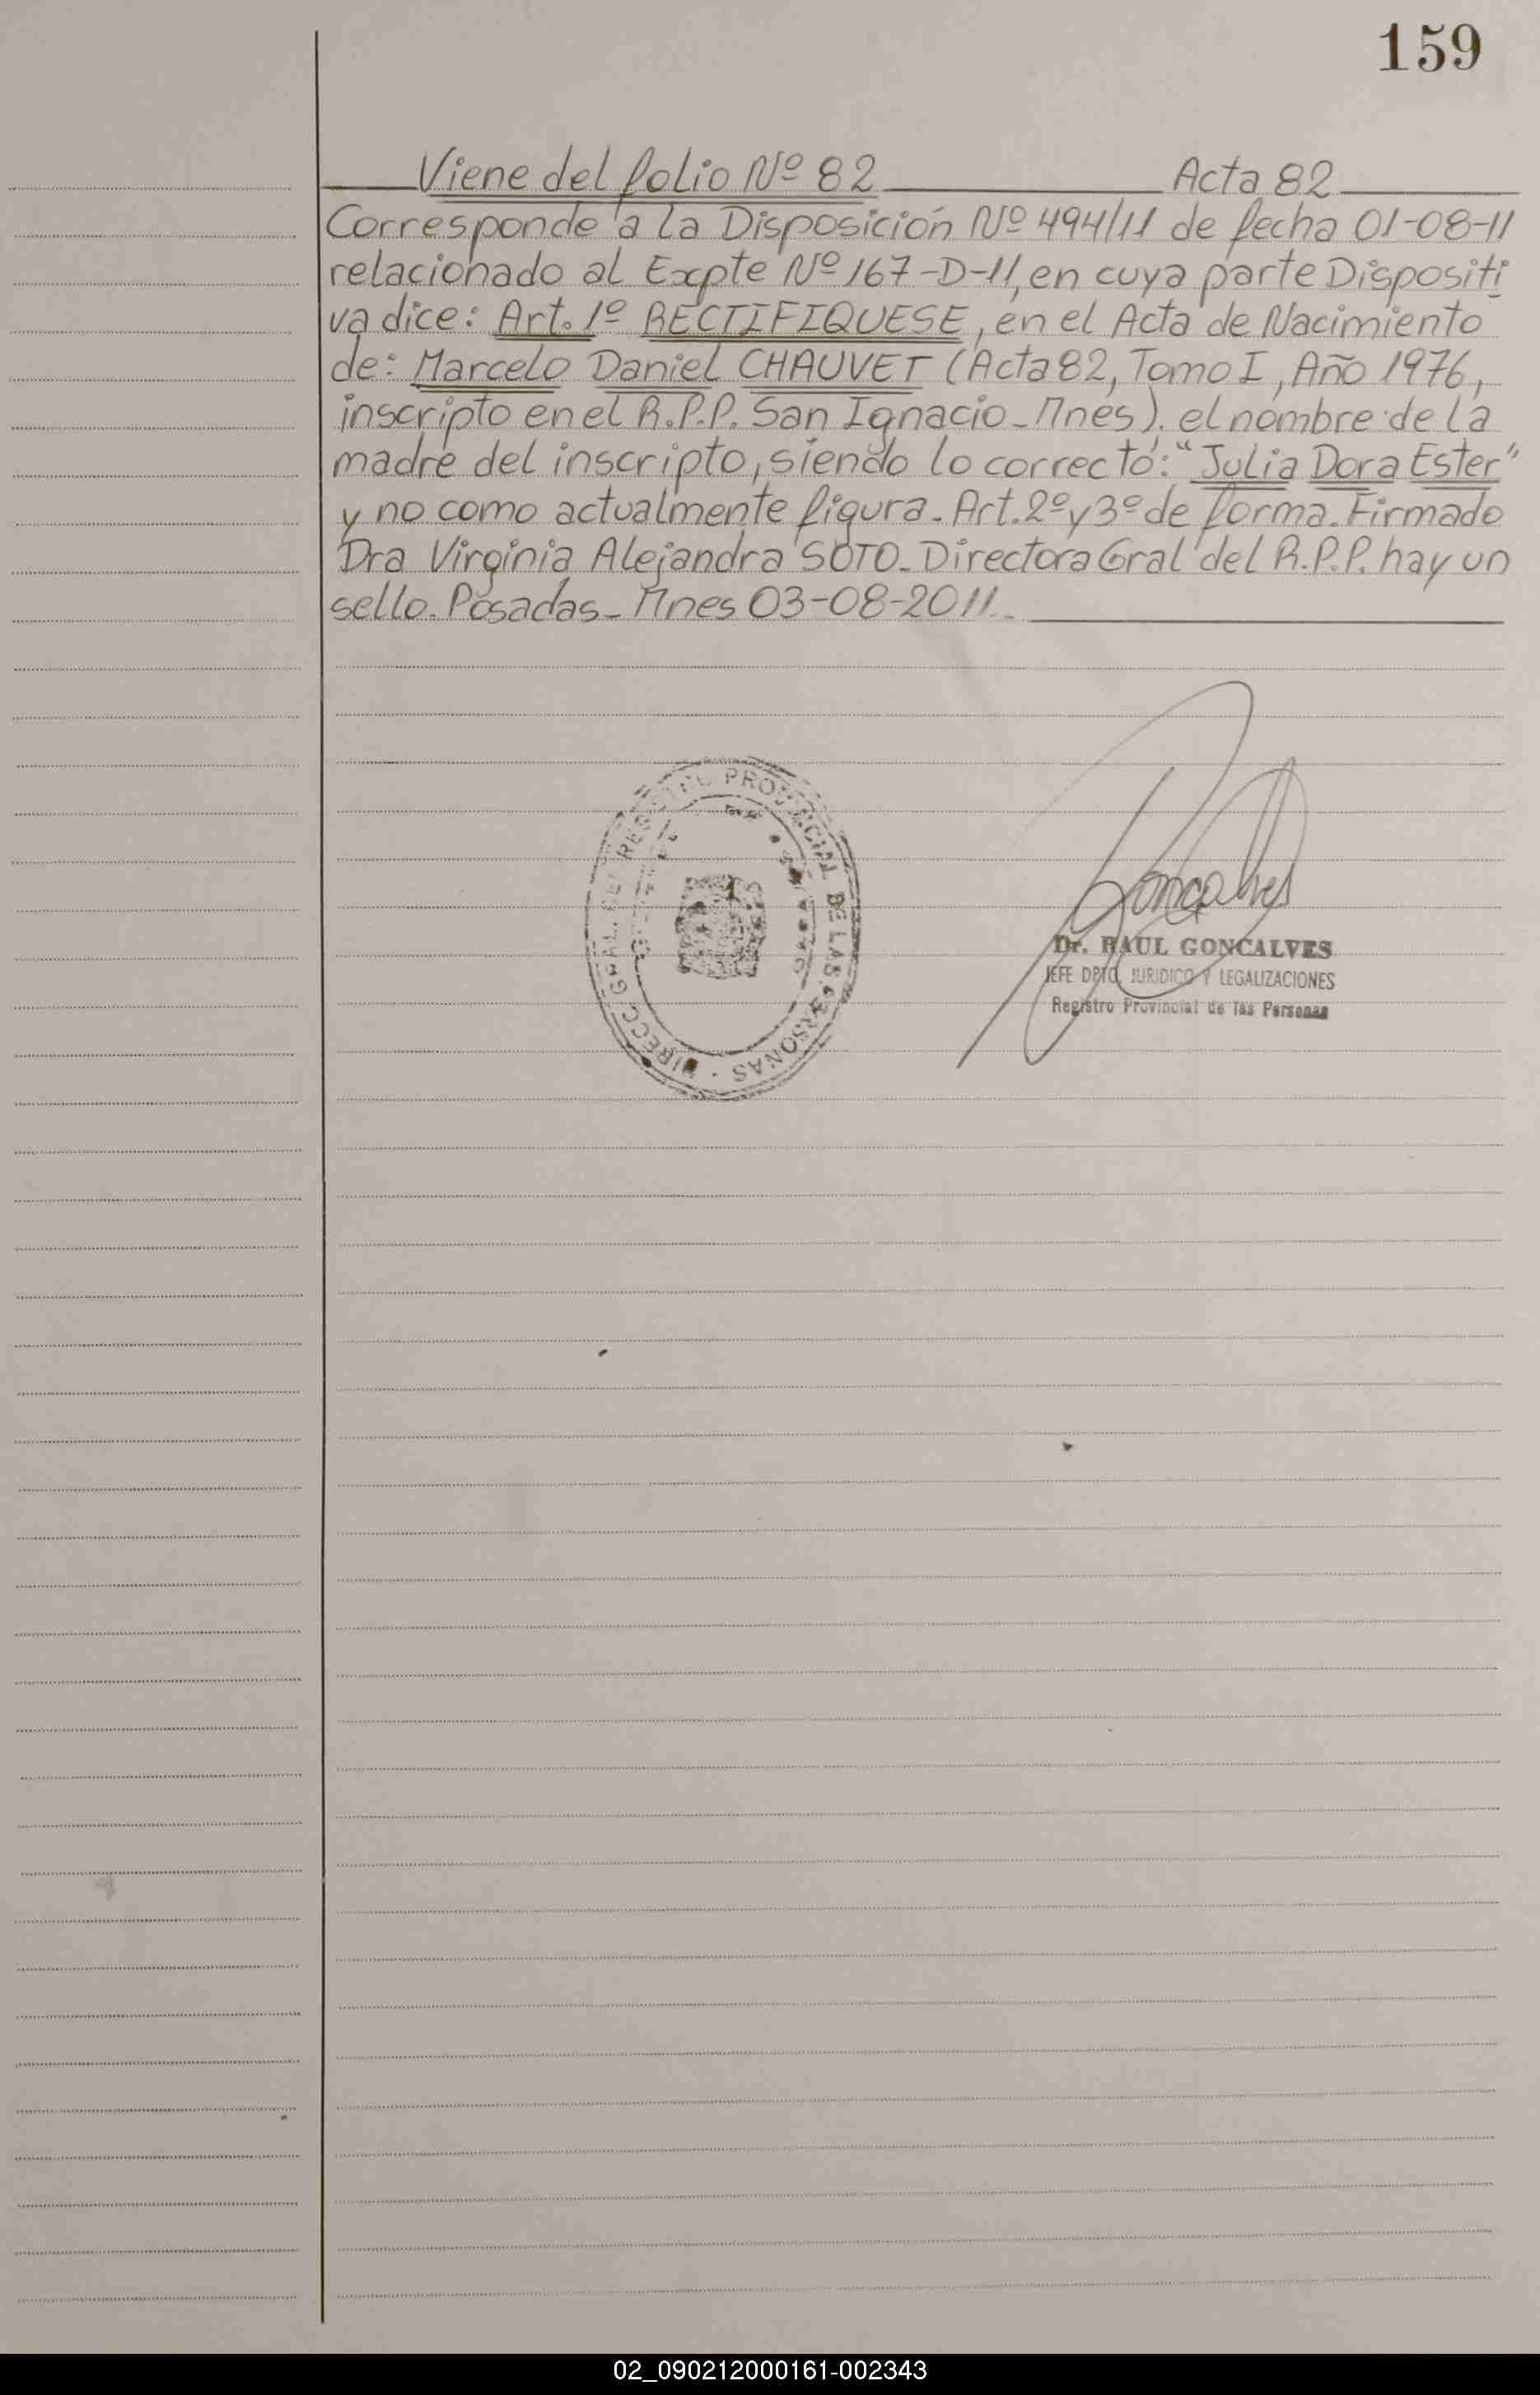 159
Viene del folio Nº 82 Acta 82
Corresponde a la Disposición Nº 494/11 de fecha 01-08-11
relacionado al Expte Nº 167-D-11, en cuya parte Dispositi
va dice: Art. 1º RECTIFIQUESE, en el Acta de Nacimiento
de: Marcelo Daniel CHAUVET (Acta 82, Tomo I, Año 1976,
inscripto en el R.P.P. San Ignacio - Mnes). el nombre de la
madre del inscripto, siendo lo correcto: "Julia Dora Ester"
y no como actualmente figura. Art. 2º y 3º de forma. Firmado
Dra Virginia Alejandra SOTO - Directora Gral del R.P.P. hay un
sello. Posadas - Mnes 03-08-2011.-
DIRECC GRAL. DEL REGISTRO PROVINCIAL DE LAS PERSONAS
Goncalves
Dr. RAUL GONCALVES
JEFE DPTO. JURIDICO Y LEGALIZACIONES
Registro Provincial de las Personas
02_090212000161-002343